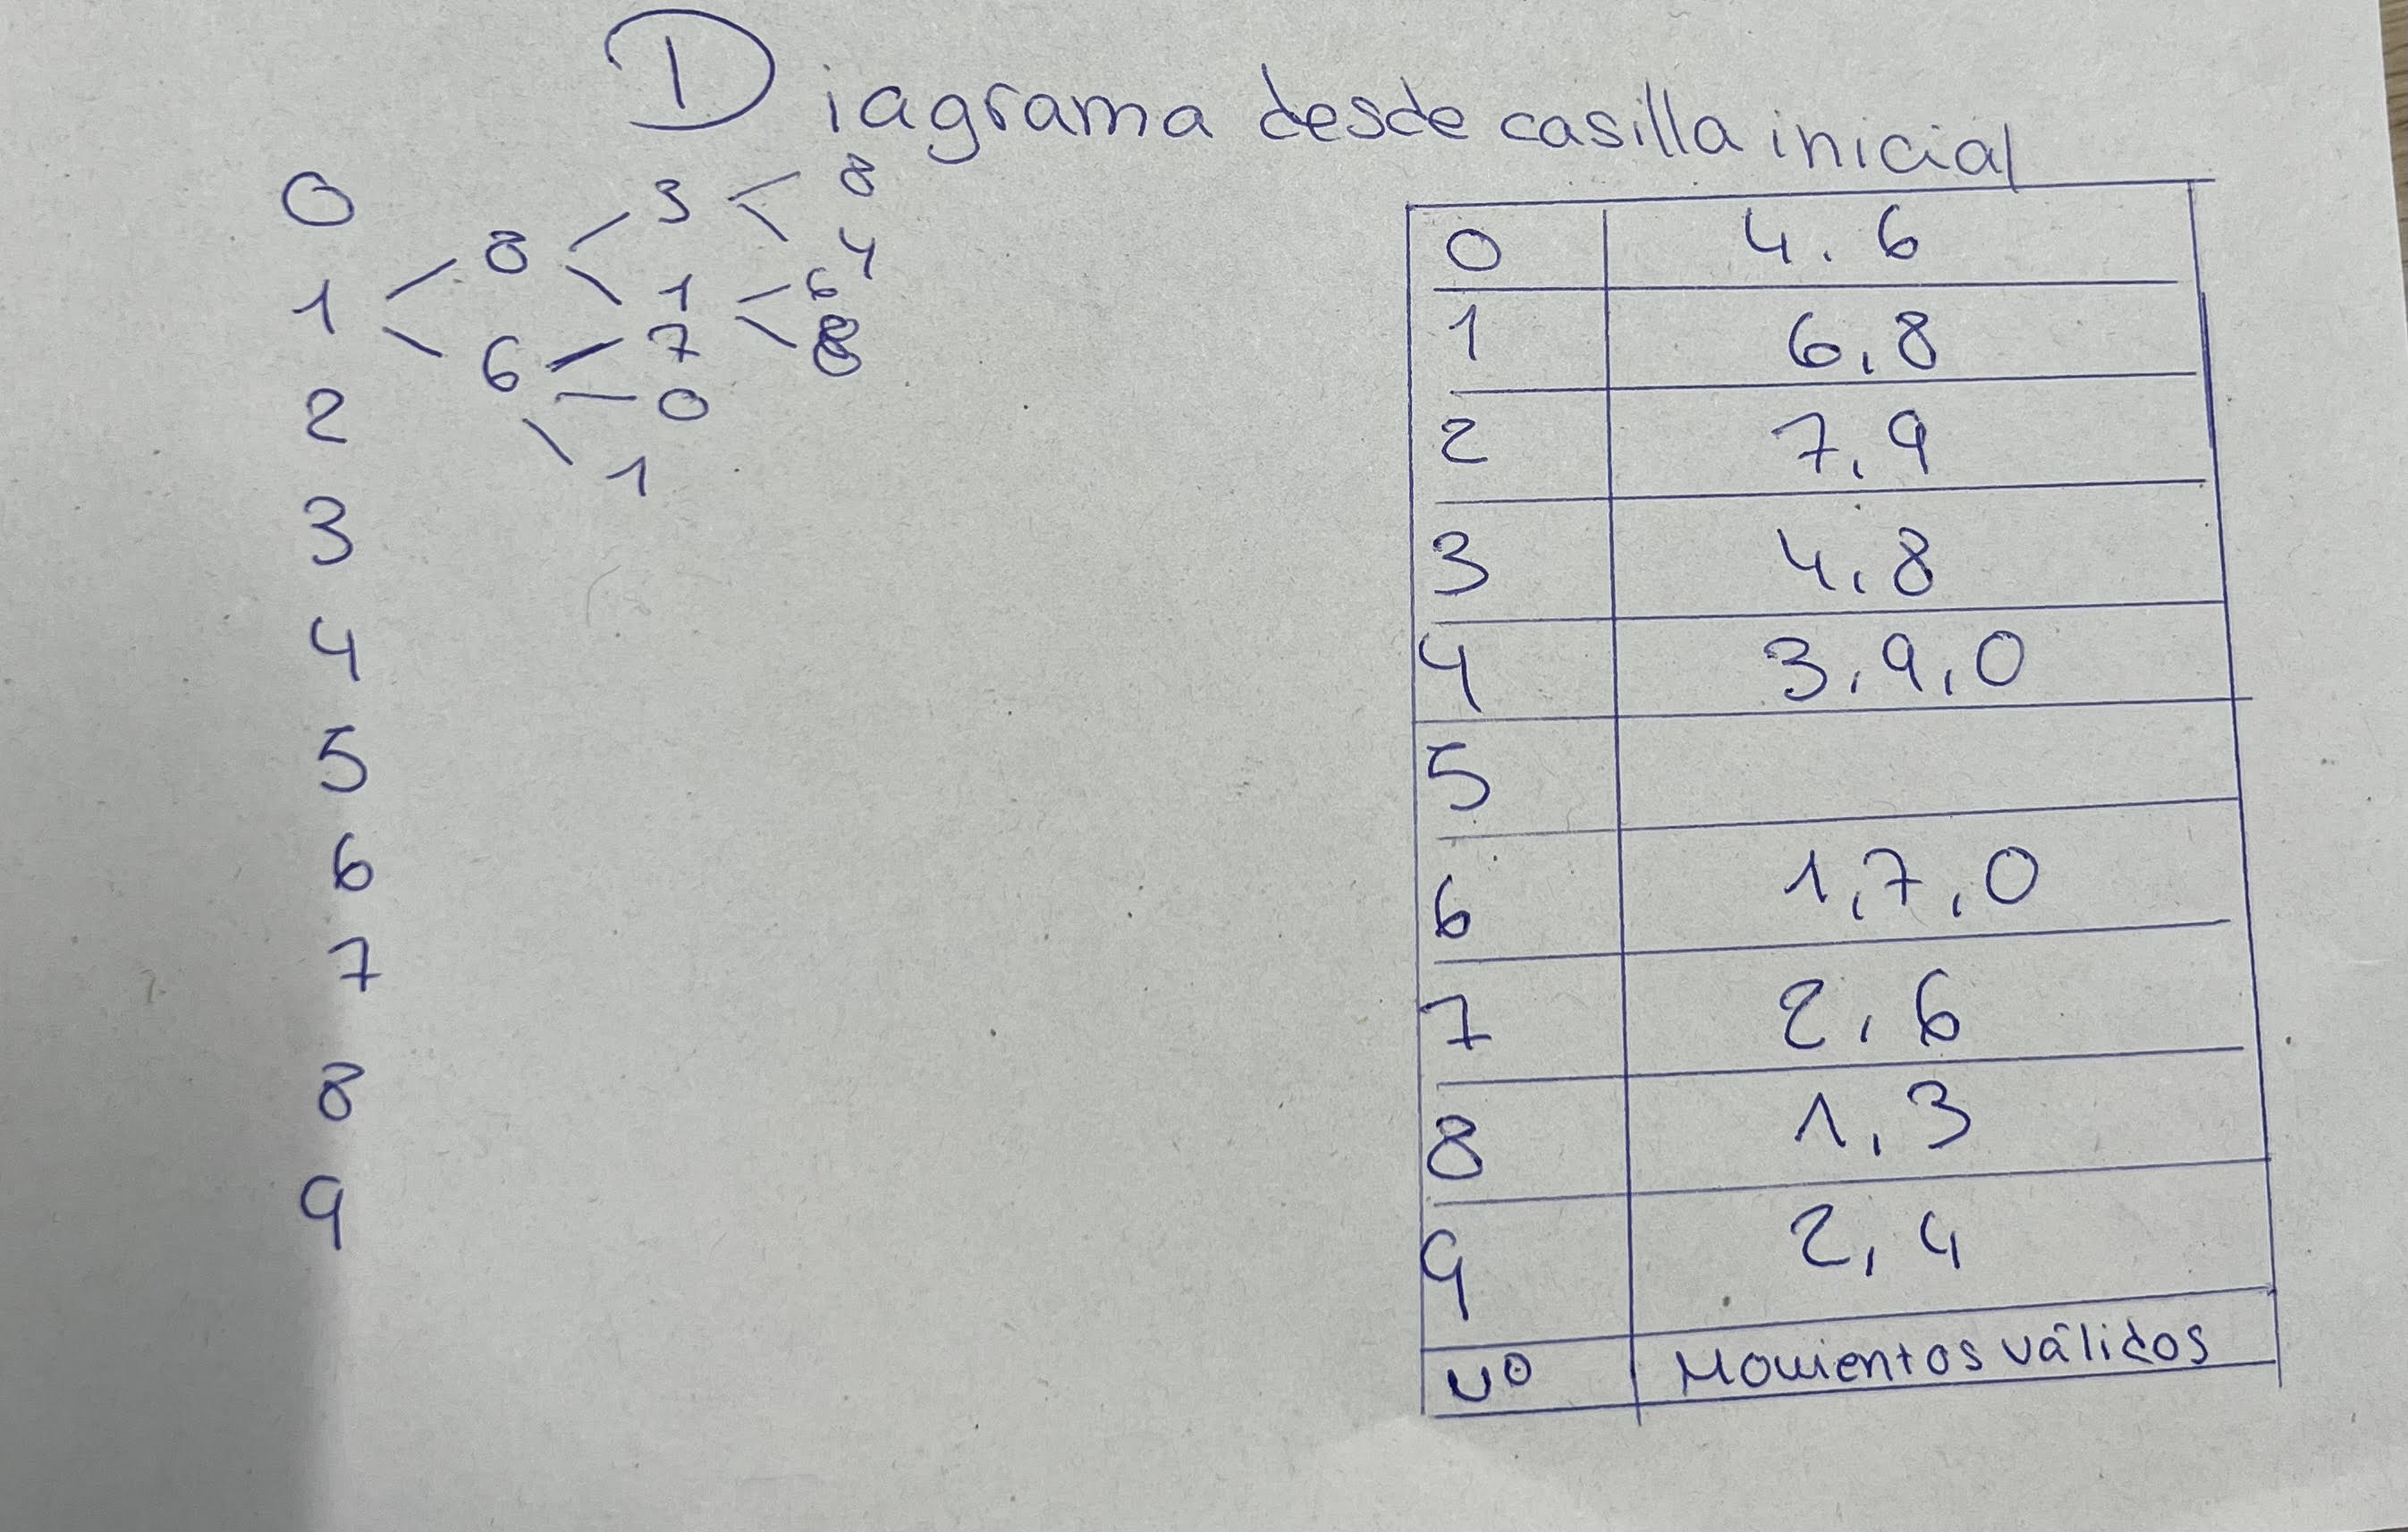 Diagrama desde casilla inicial
0
1 8 3 8
4
1 6
8
6 7
0
1
2
3
4
5
6
7
8
9
0 4.6
1 6,8
2 7,9
3 4,8
4 3,9,0
5
6 1,7,0
7 2,6
8 1,3
9 2,4
Nº Movientos válidos